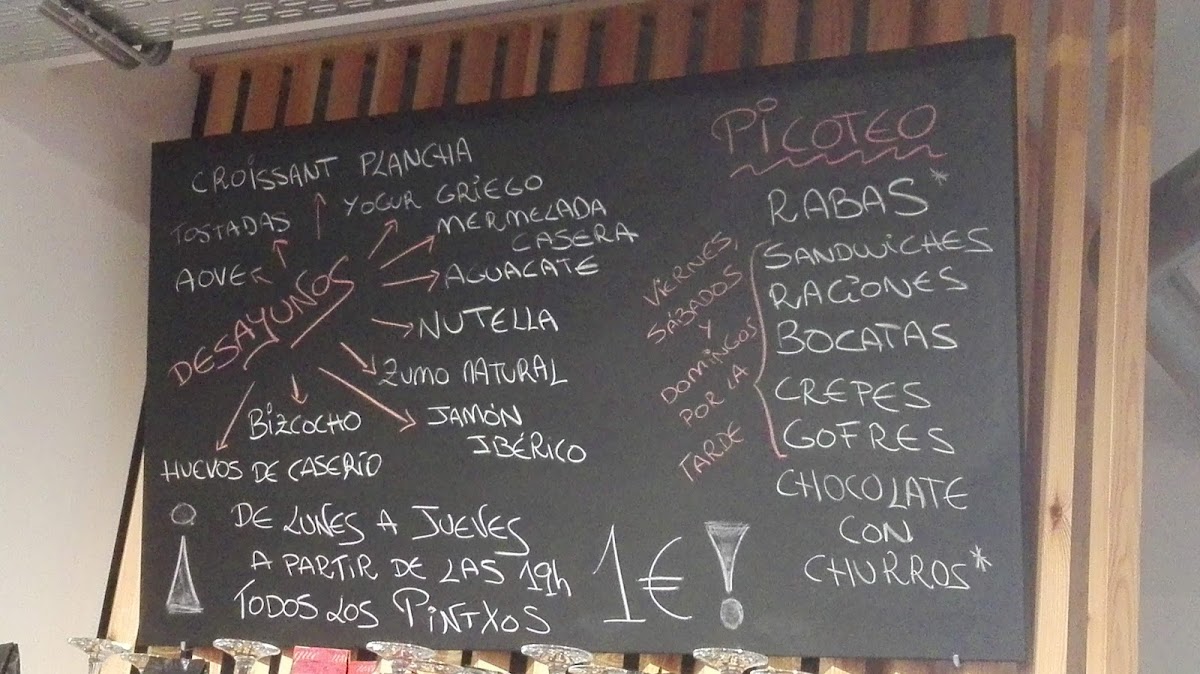 CROISSANT PLANCHA
TOSTADAS
YOGUR GRIEGO
MERMELADA
CASERA
AOVE
AGUACATE
DESAYUNOS
NUTELLA
ZUMO NATURAL
BIZCOCHO
JAMÓN
IBÉRICO
HUEVOS DE CASERIO
¡ DE LUNES A JUEVES
A PARTIR DE LAS 19h
TODOS LOS PINTXOS
1€!
PICOTEO
RABAS*
VIERNES,
SÁBADOS
Y
DOMINGOS
POR LA
TARDE
SANDWICHES
RACIONES
BOCATAS
CREPES
GOFRES
CHOCOLATE
CON
CHURROS*